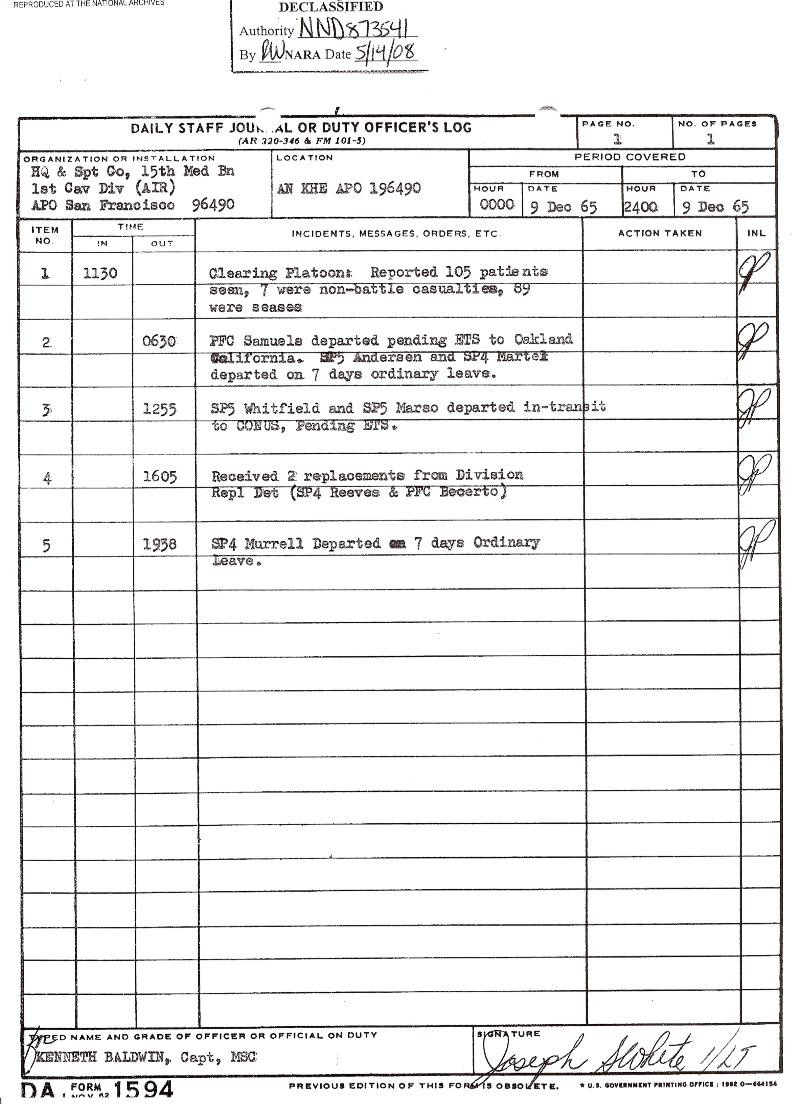 REPRODUCED AT THE NATIONAL ARCHIVES
DECLASSIFIED
Authority NND873541
By NARA Date 5/14/08
DAILY STAFF JOU AL OR DUTY OFFICER'S LOG
(AR 220-346 & FM 101-5)
PAGE NO.
1
NO. OF PAGES
1
ORGANIZATION OR INSTALLATION
HQ & Spt Co, 15th Med Bn
1st Cav Div (AIR)
APO San Francisco 96490
LOCATION
AN KHE APO 196490
PERIOD COVERED
FROM
TO
HOUR
DATE
HOUR
DATE
0000
9 Dec 65
2400
9 Dec 65
ITEM NO.
TIME
IN
OUT
INCIDENTS, MESSAGES, ORDERS, ETC.
ACTION TAKEN
INL
1 1130 Clearing Platoon: Reported 105 patients
seen, 7 were non-battle casualties, 89
were seases
2 0630 PFC Samuels departed pending ETS to Oakland
California. SP5 Andersen and SP4 Martel
departed on 7 days ordinary leave.
3 1255 SP5 Whitfield and SP5 Marso departed in-transit
to CONUS, Pending ETS.
4 1605 Received 2 replacements from Division
Repl Det (SP4 Reeves & PFC Becerto)
5 1938 SP4 Murrell Departed on 7 days Ordinary
Leave.
TYPED NAME AND GRADE OF OFFICER OR OFFICIAL ON DUTY
KENNETH BALDWIN, Capt, MSC
SIGNATURE
Joseph S White 1/LT
DA FORM 1 NOV 62 1594
PREVIOUS EDITION OF THIS FORM IS OBSOLETE.
* U.S. GOVERNMENT PRINTING OFFICE : 1962 O—664154